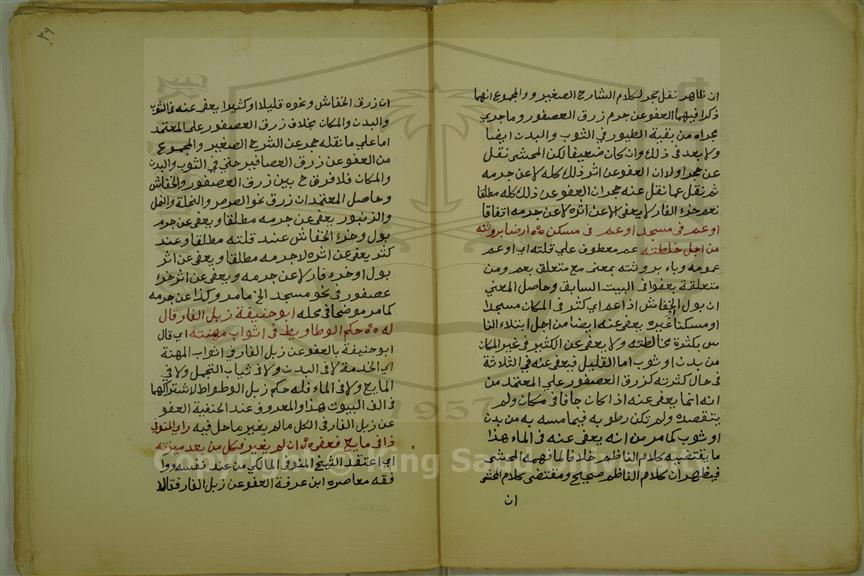 ان ظاهر نقل حجر لكلام الشارح الصغير والمجموع انهما
ذكرا فيهما العفو عن جرم زرق العصفور وما جرى
مجراه من بقية الطيور في الثوب والبدن ايضا
ولا بعد في ذلك وان كان ضعيفا لكن المحشى نقل
عن حجر اولا ان العفو عن اثر ذلك كله لا عن جرمه
ثم نقل عما نقل عنه حجر ان العفو عن ذلك كله مطلقا
نعم خرء الفار لا يعفى الا عن اثره لا عن جرمه اتفاقا
او عم في مسجد او عم في مسكن ٥٥ ارضا بروثته
من اجل خلطته عم معطوف علي قلته اي او عم
عمومه وباء بروثته بمعنى مع متعلق بعم ومن
متعلقة بعفوا في البيت السابق وحاصل المعني
ان بول الخفاش اذا عم اي كثر في المكان مسجدا
او مسكنا غيره يعفى عنه ايضا من اجل ابتلاء النا
س بكثرة مخالطته ولا يعفى عن الكثير في غير المكان
من بدن او ثوب اما القليل فيعفى عنه في الثلاثة
في حال كثرته كزرق العصفور علي المعتمد من
انه انما يعفى عنه اذا كان جافا في مكان ولم
يتقصده ولم تكن رطوبه فيما مسه به من بدن
او ثوب كما مر من انه يعفى عنه في الماء هذا
ما يقتضيه كلام الناظم خلافا لما فهمه المحشى
فيظهر ان كلام الناظم صحيح ومقتضى كلام المحشى
ان
٣٩
ان زرق الخفاش ونحوه قليلا او كثيرا يعفى عنه في الثوب
والبدن والمكان بخلاف زرق العصفور علي المعتمد
اما علي ما نقله حجر عن الشرح الصغير والمجموع
من العفو عن زرق العصافير حتي في الثوب والبدن
والمكان فلا فرق ح بين زرق العصفور والخفاش
وحاصل المعتمد ان زرق نحو الصرصر والنحلة والنمل
والزنبور يعفى عن جرمه مطلقا ويعفى عن جرم
بول وخرء الخفاش عند قلته مطلقا وعند
كثر يعفى عن اثره لا جرمه مطلقا ويعفى عن اثر
بول او خرء فار لا عن جرمه ويعفى عن اثر خرء
عصفور في نحو مسجد الخ ما مر وكذا عن جرمه
كما مر موضحا في محله ابو حنيفة زبل الفار قال
له ٥٥ حكم الوطاويط في اثواب مهنته اي قال
ابو حنيفة بالعفو عن زبل الفار في اثواب المهنة
اي الخدمة لا في البدن ولا في ثياب التجمل ولا في
المايع ولا في الماء فله حكم زبل الوطواط لاشتراكهما
في الف البيوت هذا والمعروف عند الحنفية العفو
عن زبل الفار في الكل ما لم يغير ما حل فيه
ذا في مايع فعفوه ٥٥ ان لم يغير فكل من بعد ميزته
اي اعتقد الشيخ المالكي من عند نفسه ووا
فقه معاصره ابن عرفة العفو عن زبل الفار فقالا
Copyright © King Saud University
1957